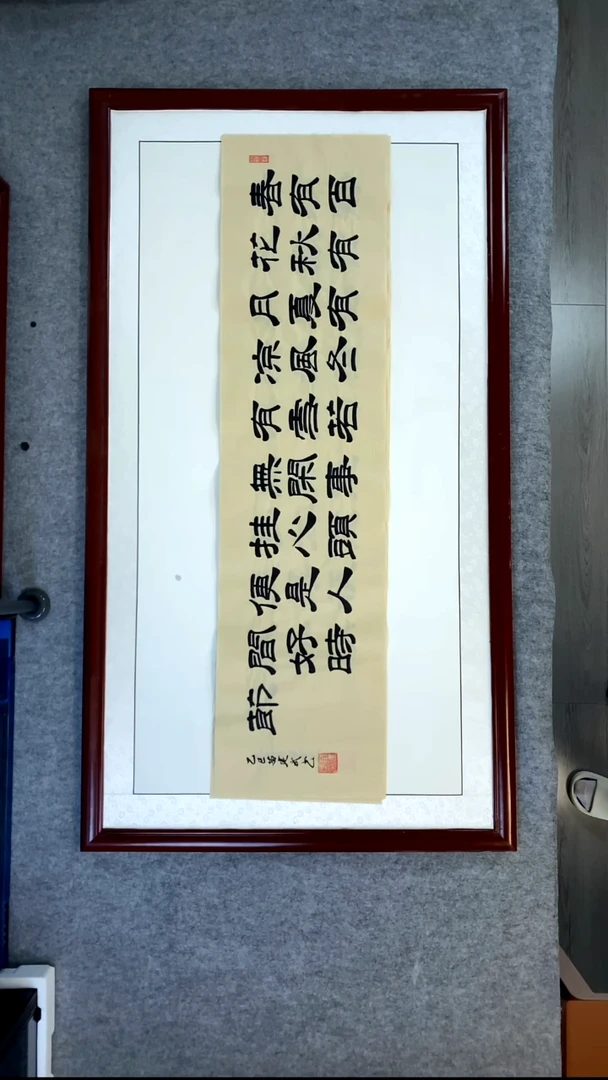 春有百
花秋有
月夏有
凉風冬
有雪若
無閑事
挂心頭
便是人
間好時
節
乙巳